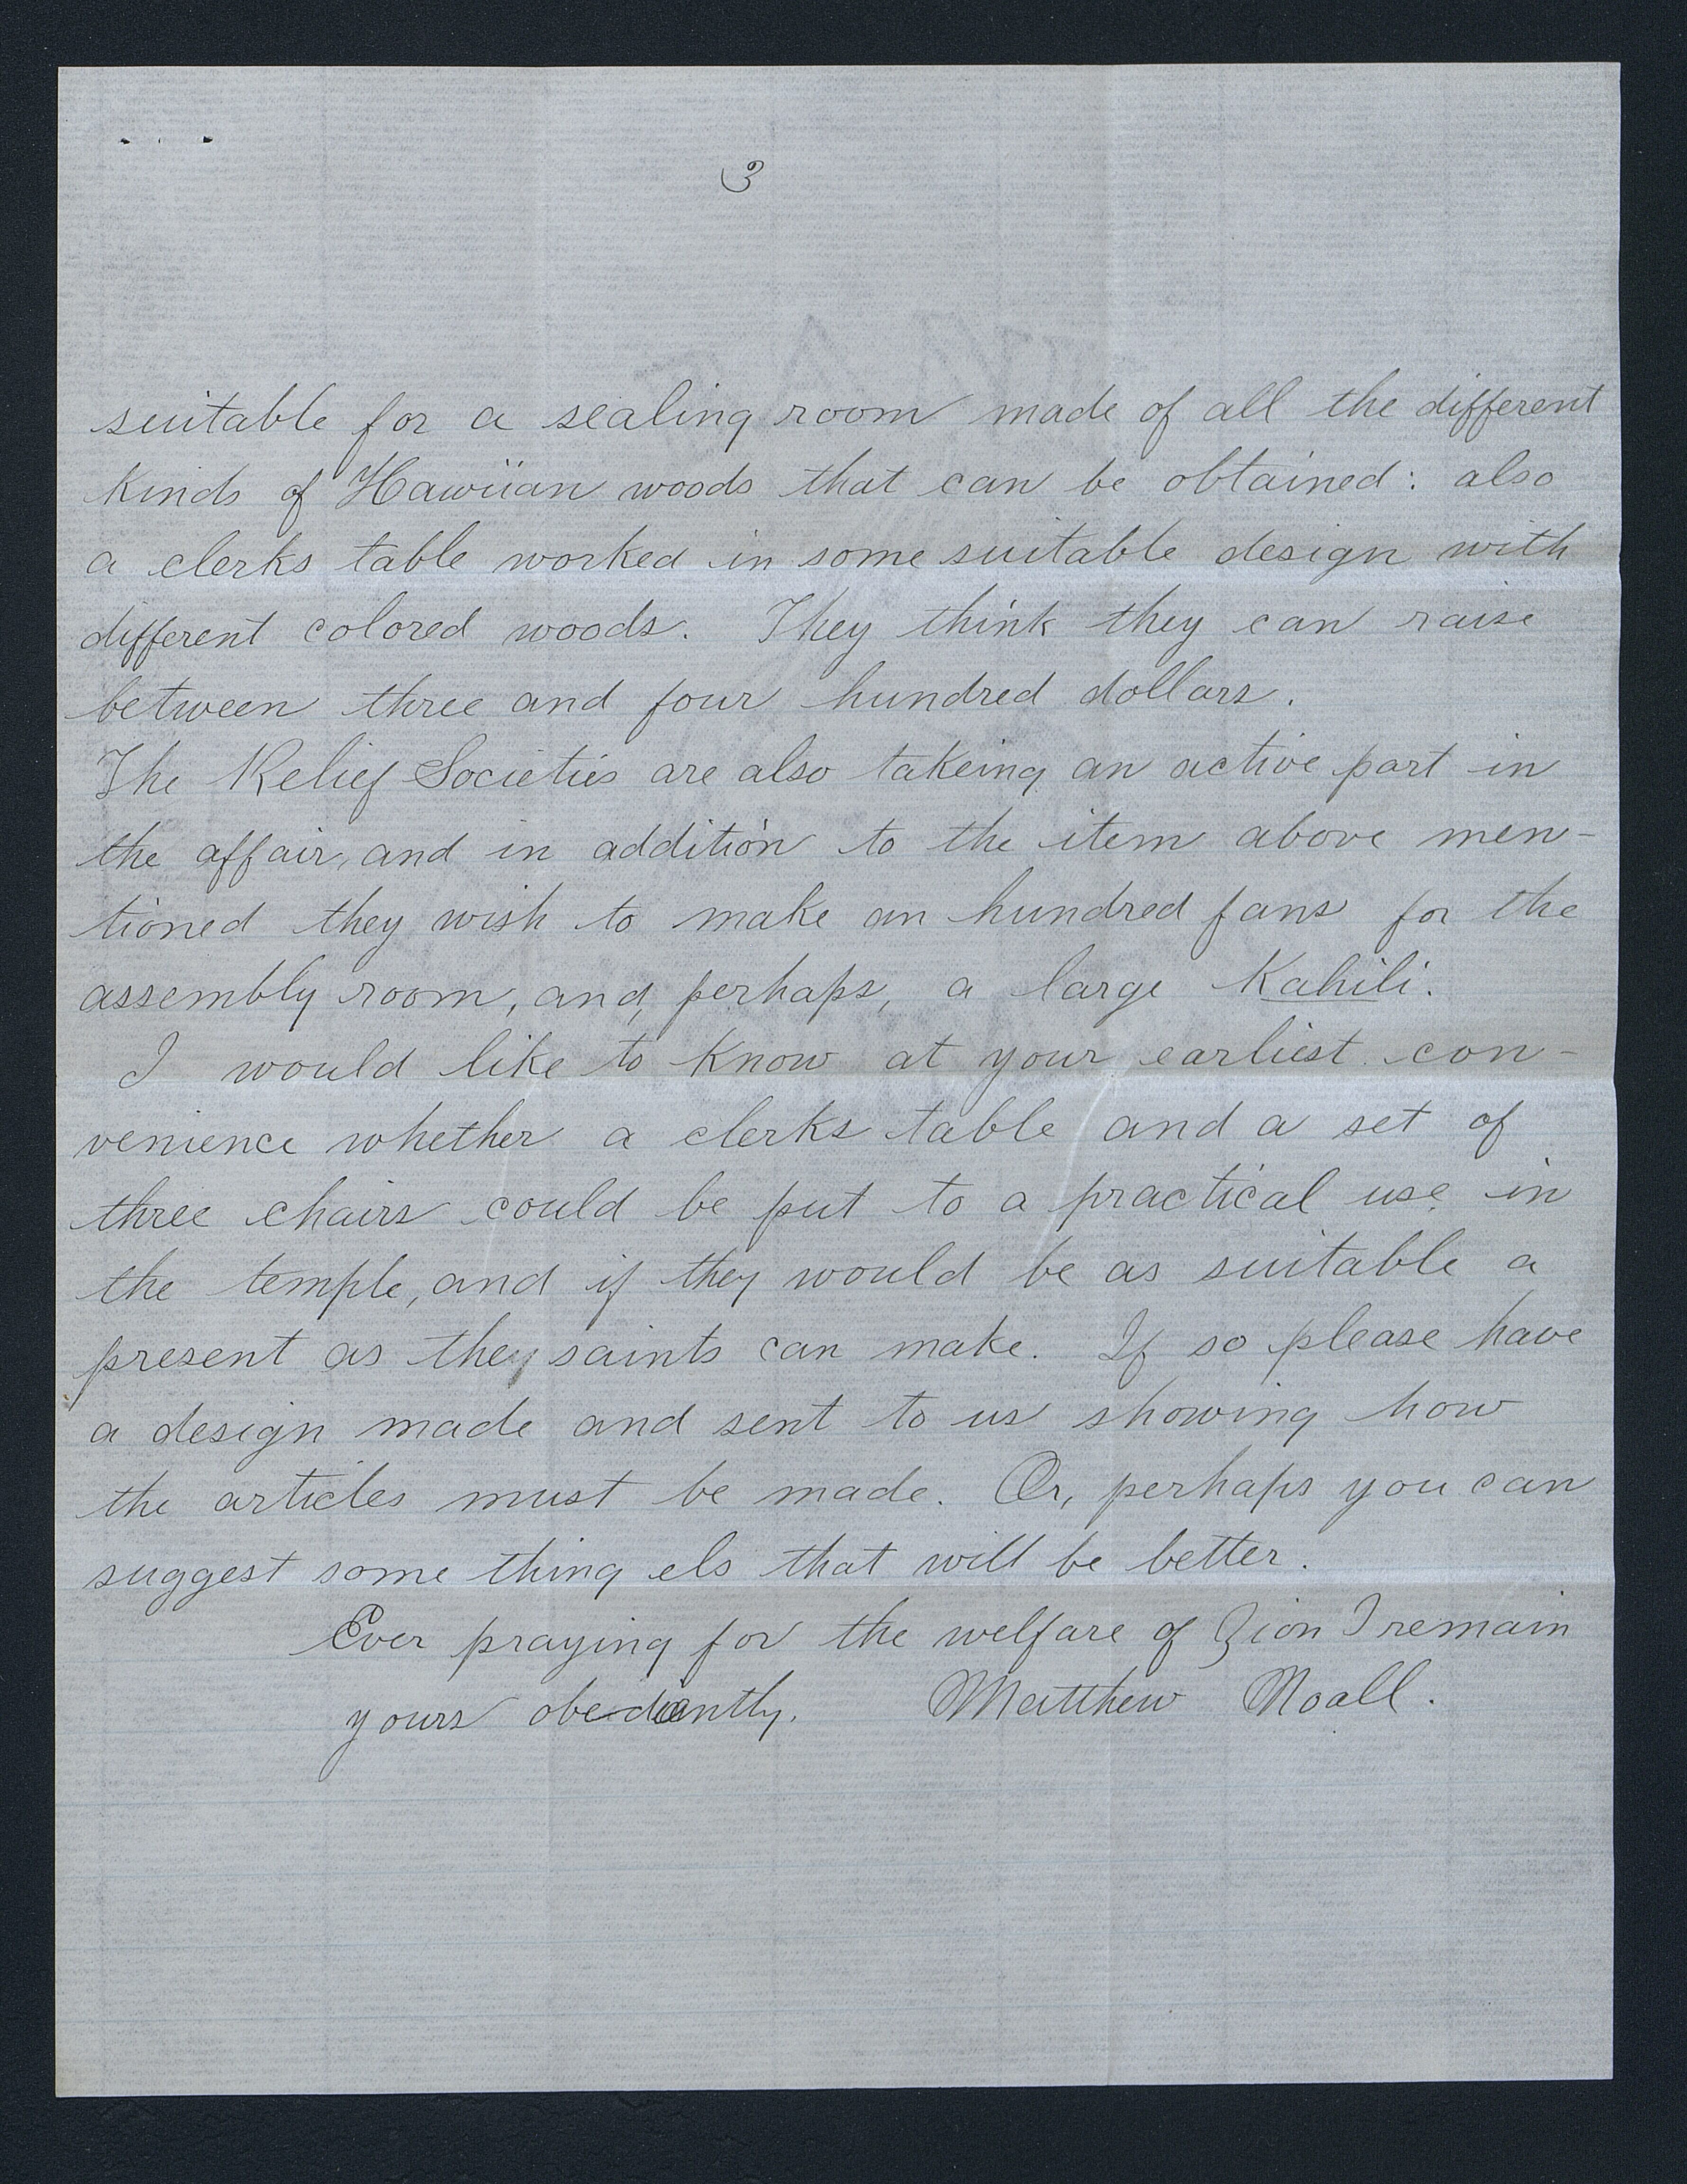 3
suitable for a sealing room made of all the different
kinds of Hawiian woods that can be obtained: also
a clerks table worked in some suitable design with
different colored woods. They think they can raise
between three and four hundred dollars.
The Relief Societies are also takeing an active part in
the affair, and in addition to the item above men-
tioned they wish to make an hundred fans for the
assembly room, and, perhaps, a large Kahili.
I would like to know at your earliest con-
venience whether a clerks table and a set of
three chairs could be put to a practical use in
the temple, and if they would be as suitable a
present as they saints can make. If so please have
a design made and sent to us showing how
the articles must be made. Or, perhaps you can
suggest some thing els that will be better.
Ever praying for the welfare of Zion I remain
yours obediantly. Matthew Noall.